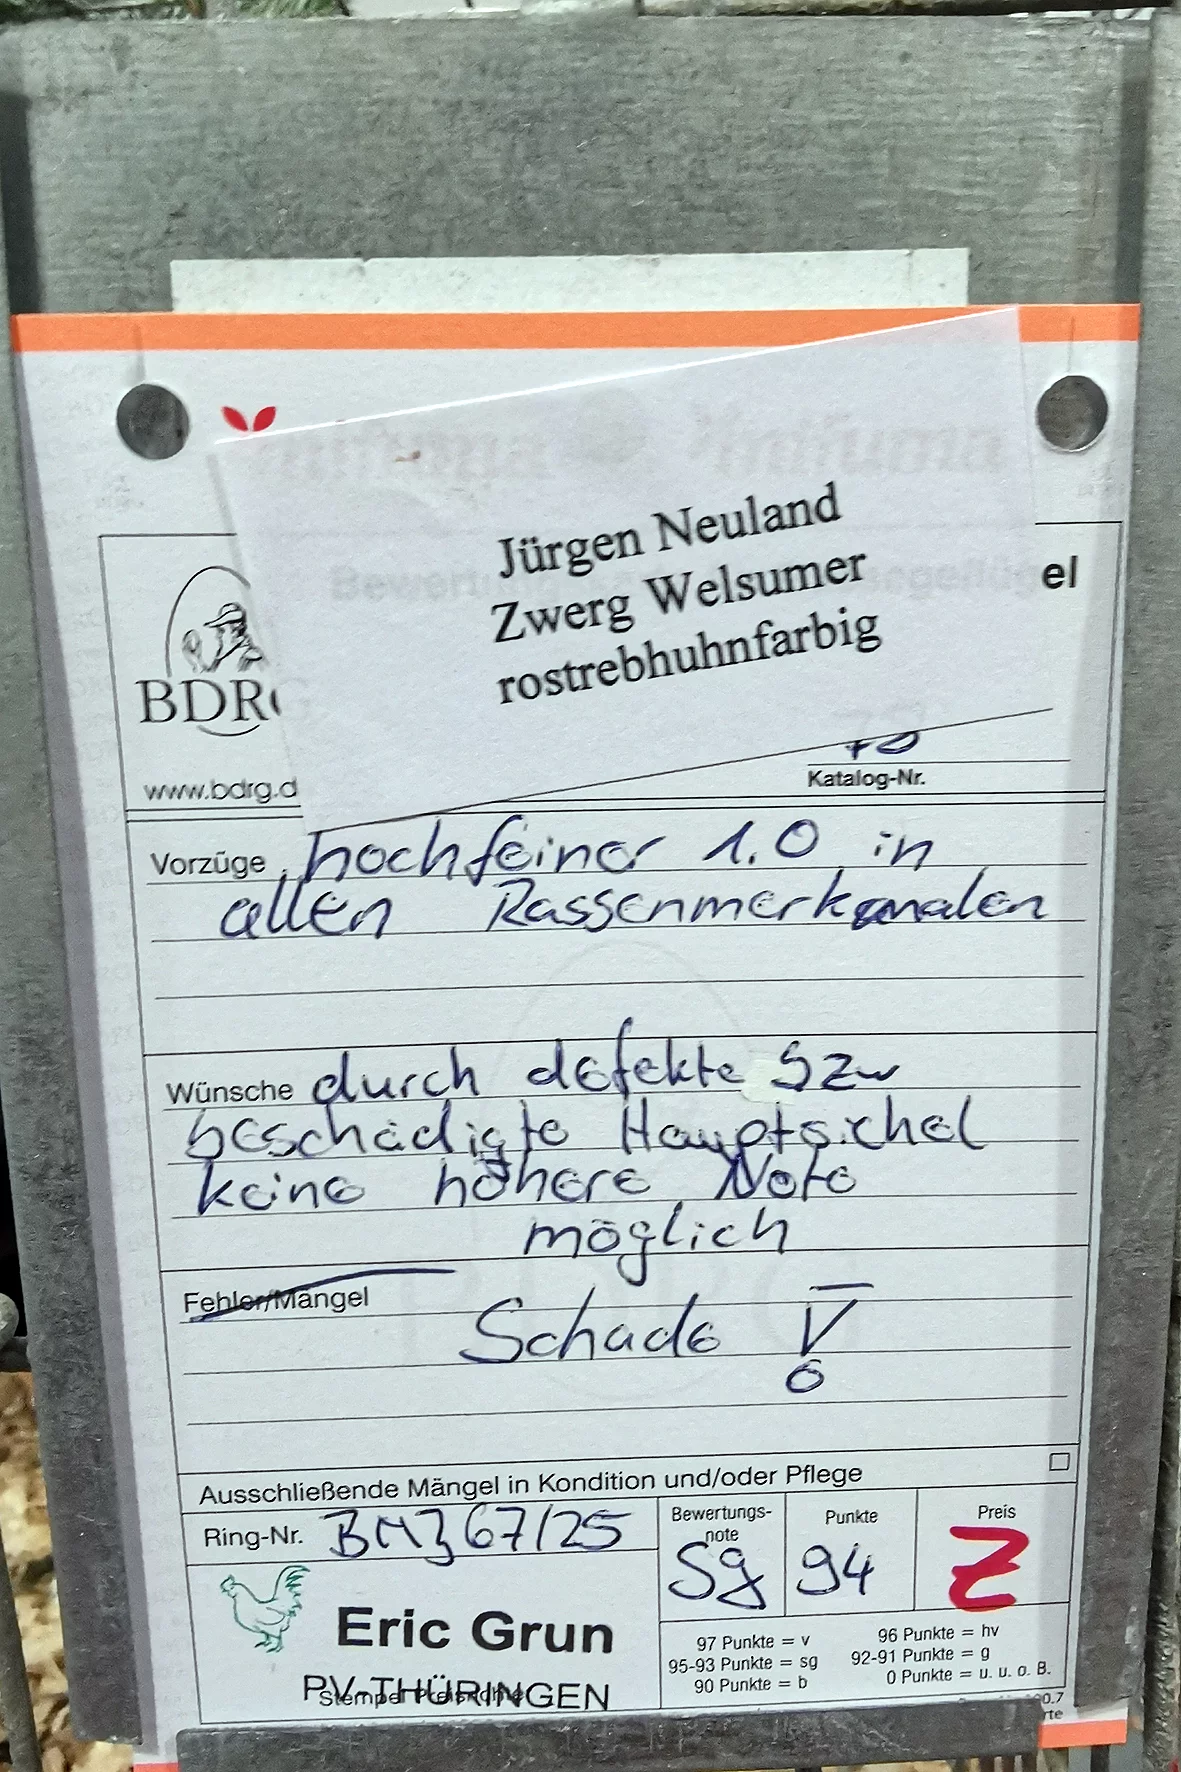 Jürgen Neuland
Zwerg Welsumer
rostrebhuhnfarbig
el
BDRG
www.bdrg.d
Katalog-Nr.
Vorzüge hochfeiner 1.0 in
allen Rassenmerkmalen
Wünsche durch defekte Szw
beschädigte Hauptsichel
keine höhere Note
möglich
Fehler/Mängel
Schade V
Ausschließende Mängel in Kondition und/oder Pflege
Ring-Nr. BM367/25
Bewertungs-
note
Sg
Punkte
94
Preis
Z
Eric Grun
PV-THÜRINGEN
97 Punkte = v
96 Punkte = hv
95-93 Punkte = sg
92-91 Punkte = g
90 Punkte = b
0 Punkte = u. u. o. B.